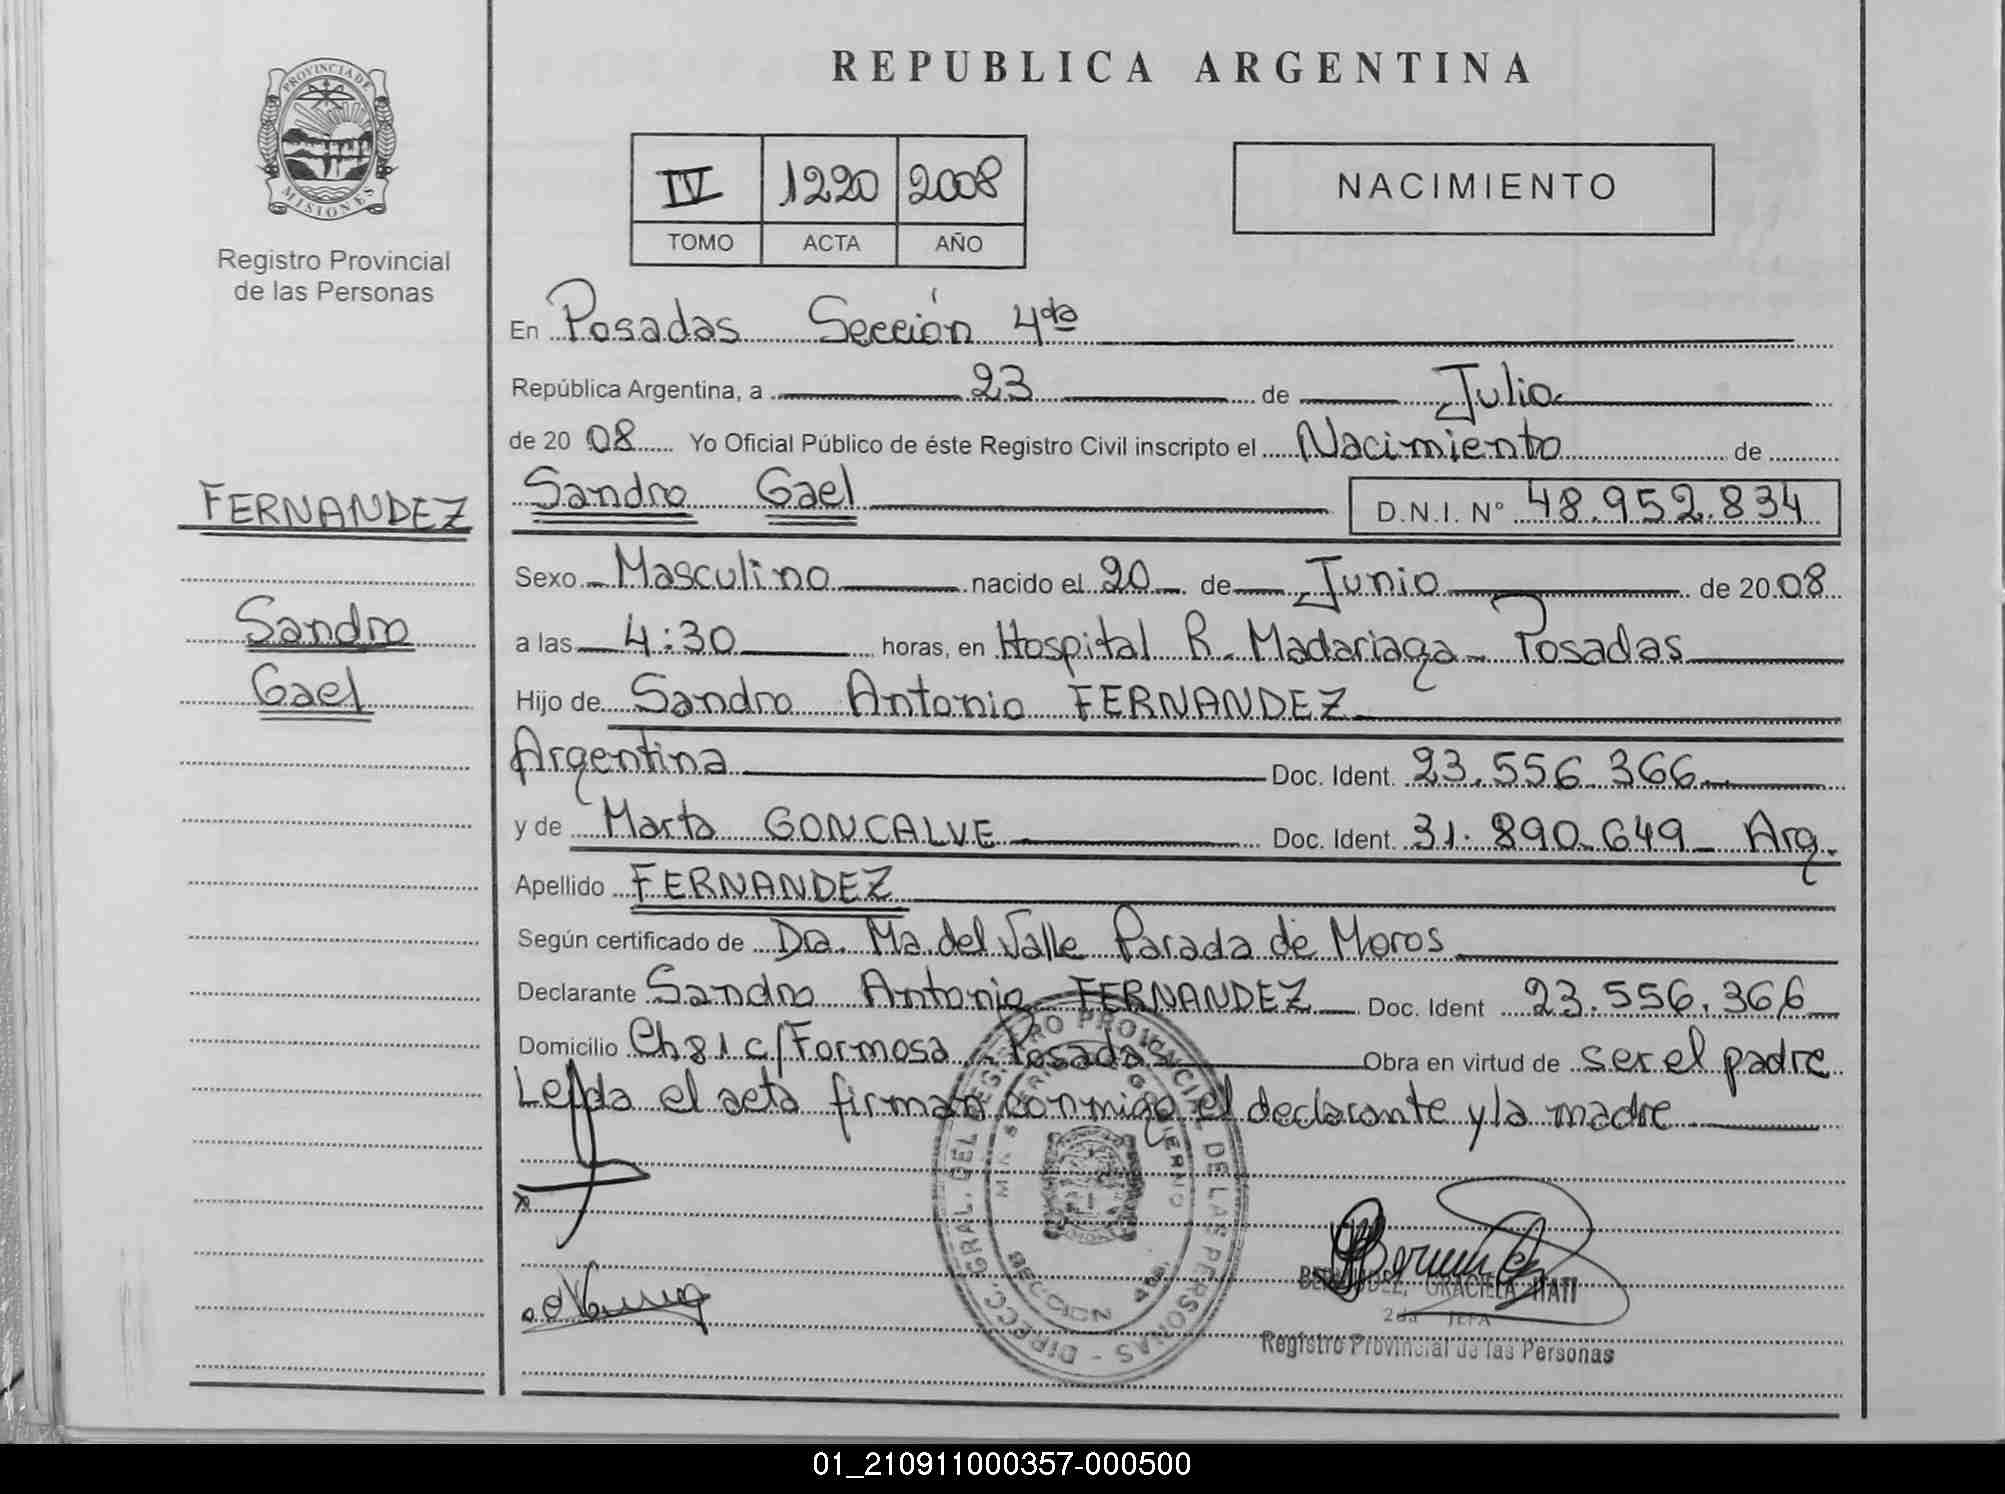 PROVINCIA DE
MISIONES
Registro Provincial
de las Personas
FERNANDEZ
Sandro
Gael
REPUBLICA ARGENTINA
IV 1220 2008
TOMO ACTA AÑO
NACIMIENTO
En Posadas Sección 4ta
República Argentina, a 23 de Julio
de 20 08 Yo Oficial Público de éste Registro Civil inscripto el Nacimiento de
Sandro Gael D.N.I. N° 48.952.834
Sexo Masculino nacido el 20 de Junio de 20 08
a las 4:30 horas, en Hospital R. Madariaga - Posadas
Hijo de Sandro Antonio FERNANDEZ
Argentina Doc. Ident. 23.556.366
y de Marta GONCALVE Doc. Ident. 31.890.649 - Arg.
Apellido FERNANDEZ
Según certificado de Dra. Ma. del Valle Parada de Moros
Declarante Sandro Antonio FERNANDEZ Doc. Ident 23.556.366
Domicilio Ch 81 c/Formosa - Posadas Obra en virtud de ser el padre
Leída el acta firman conmigo el declarante y la madre
DIRECC. GRAL. DEL REGISTRO PROVINCIAL DE LAS PERSONAS
GRACIELA ITATI
2da JEFA
Registro Provincial de las Personas
01_210911000357-000500